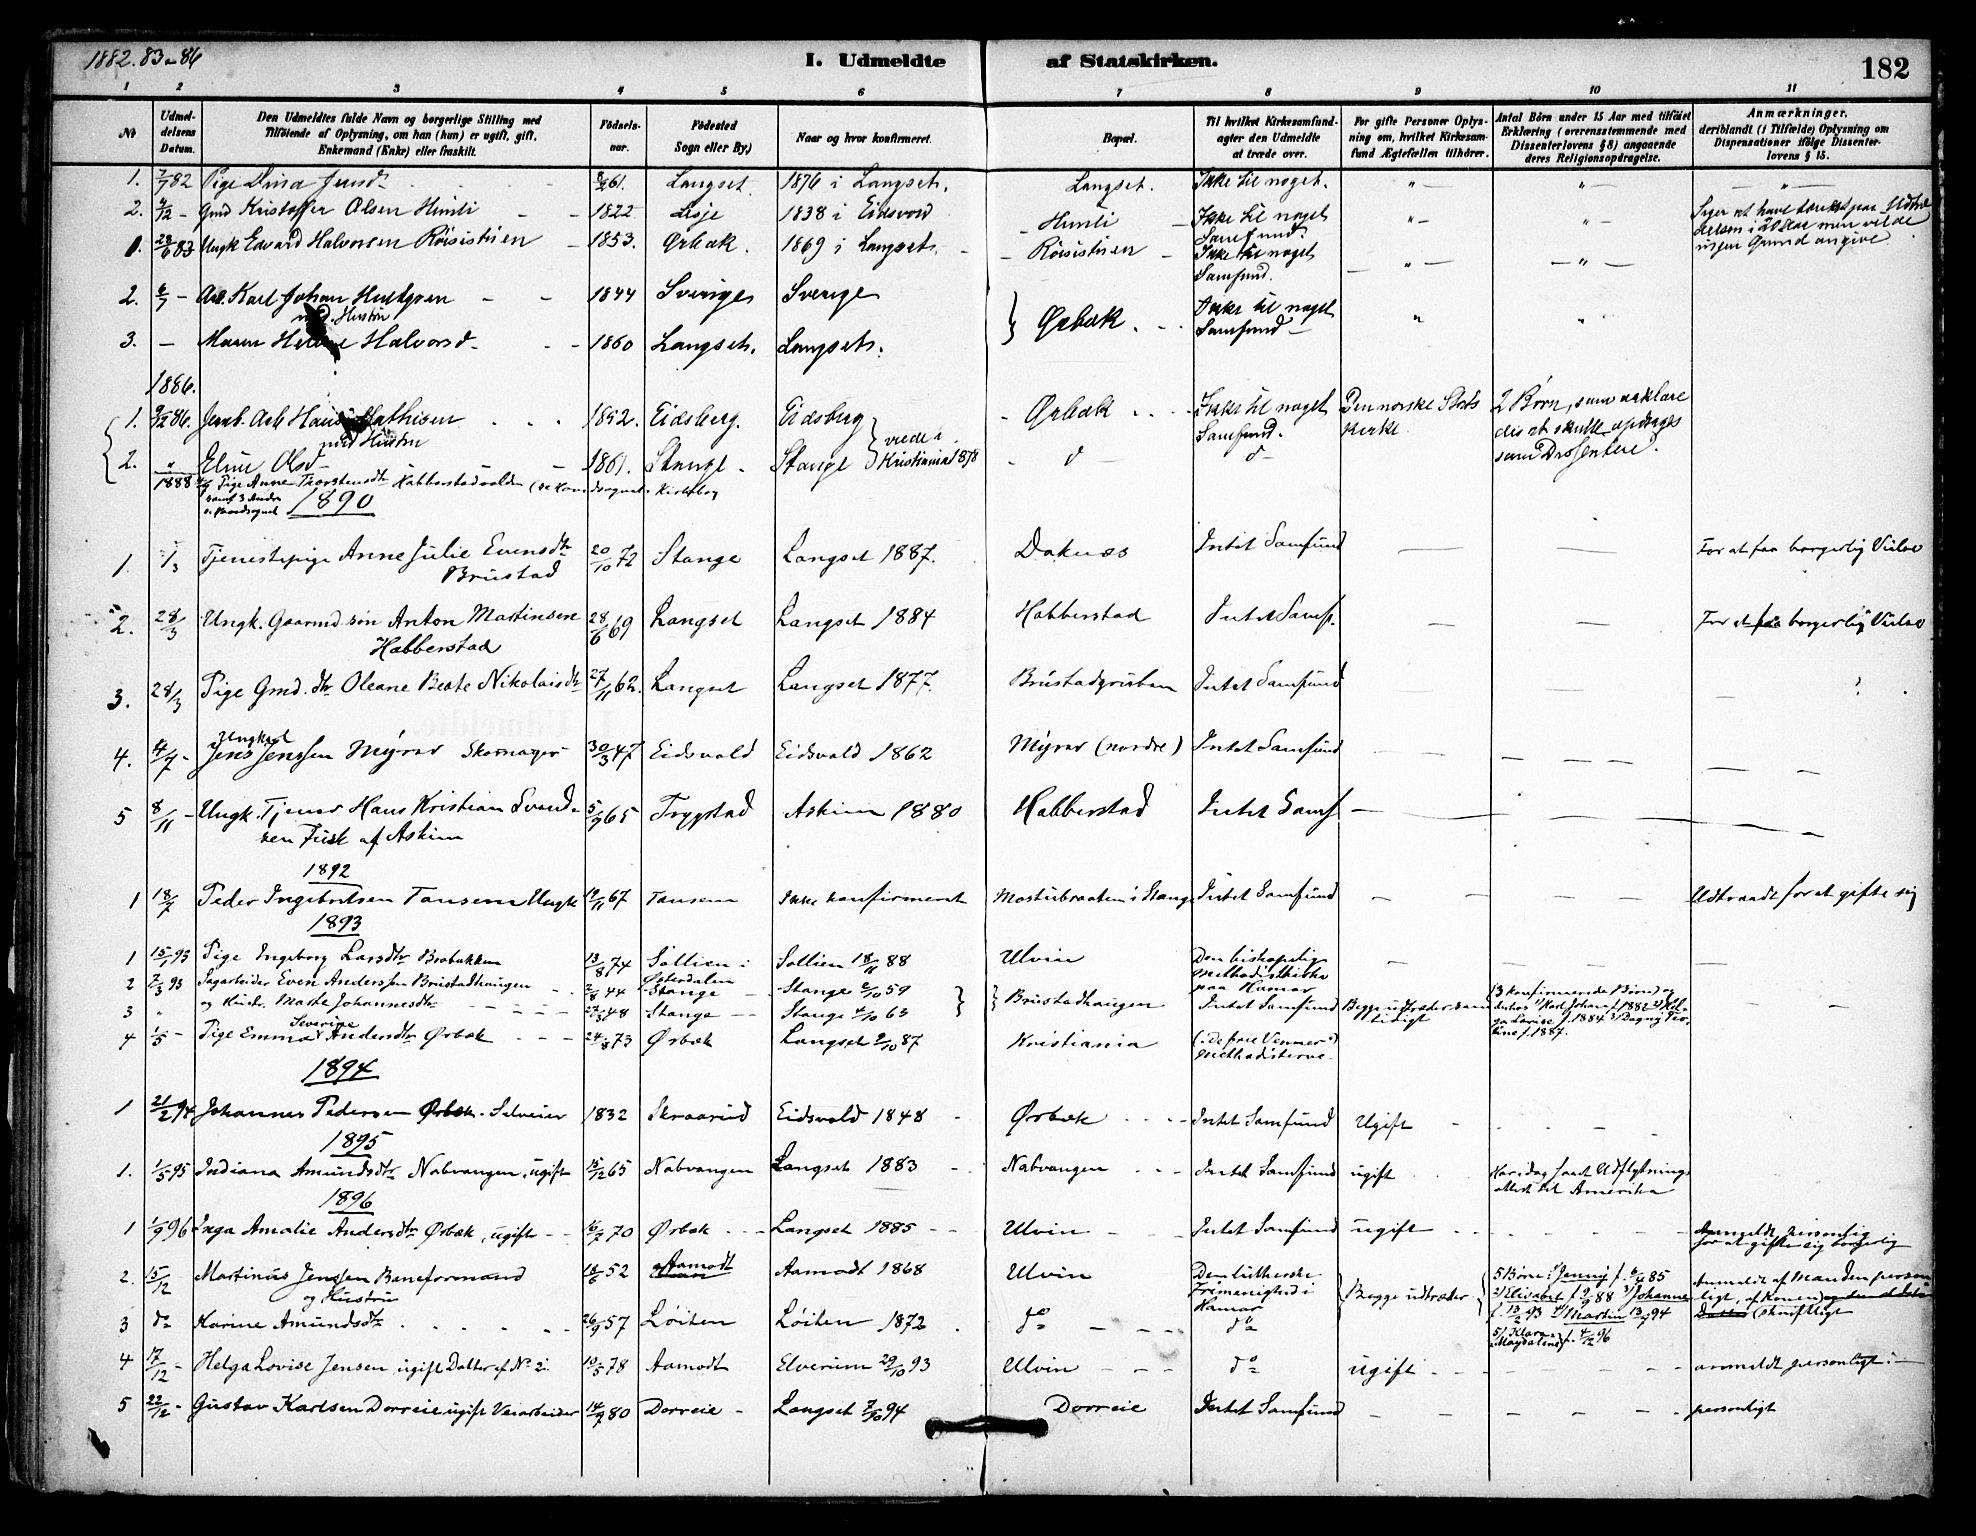 1882. 83-86
I. Udmeldte af Statskirken.
182
1 2 3 4 5 6 7 8 9 10 11
No
Udmeldelsens Datum.
Den Udmeldtes fulde Navn og borgerlige Stilling med
Tilföiende af Oplysning, om han (hun) er ugift, gift,
Enkemand (Enke) eller fraskilt.
Födselsaar.
Födested
Sogn eller By.)
Naar og hvor konfirmeret.
Bopæl.
Til hvilket Kirkesamfund-
agter den Udmeldte
at træde over.
For gifte Personer Oplys-
ning om, hvilket Kirkesam-
fund Ægtefællen tilhörer.
Antal Börn under 15 Aar med tilföiet
Erklæring (overensstemmende med
Dissenterlovens § 8) angaaende
deres Religionsopdragelse.
Anmærkninger,
deriblandt (i Tilfælde) Oplysning om
Dispensationer ifölge Dissenter-
lovens § 15.
1. 7/7 82 Pige Dina Jensdr 61. Langset. 1876 i Langset. Langset. Ikke til noget. " "
2. 4/12 - Gmd Kristoffer Olsen Himli - - 1822 1838 i Eidsvold Himli - Ikke til noget Samfund. " "
1. 28/6 83 Ungk Edvard Halvorsen Röisistuen - 1853. Ørbæk. 1869 i Langset. Röisistuen - Ikke til noget Samfund. " "
2. 6/7 - Arb. Karl Johan Hultgren - - 1844 Sverige Sverige
med Hustru
} Ørbæk. Ikke til noget Samfund - " "
3. - Maren Helene Halvorsd - 1860 Langset. Langset.
1886.
1. 9/12 86. Jernb. Arb Hans Mathisen 1852. Eidsberg. Eidsberg Ørbæk Ikke til noget Samfund. Den norske Stats Kirke. 2 Børn, som erklæredes at skulle opdrages som Dissentere.
med Hustru
2. " Eline Olsd - 1861. Stange - Stange } viede i Kristiania 1878
1888 Pige Anne Thorstensdtr Habberstadvolden
samt 3 Andre
1890
1. 1/3 Tjenestepige Anne Julie Evensdtr Brustad 20/10 72 Stange Langset 1887. Doknes Intet Samfund — — For at faa borgerlig Vielse
2. 28/3 Ungk. Gaarmd.søn Anton Martinsen Habberstad 28/6 69 Langset Langset 1884 Habberstad Intet Samf. — — For at faa borgerlig Vielse
3. 28/3 Pige Gmd.dtr Oleane Beate Nikolaisdtr 27/11 62. Langset Langset 1877. Brustadgruben Intet Samfund — —
4. 4/7 - Ungkarl Jens Jenssen Myrer Skomager 30/3 47 Eidsvold Eidsvold 1862 Myrer (nordre) Intet Samfund — —
5 8/11 - Ungk. Tjener Hans Kristian Svendsen Fusk af Askim 5/9 65 Trygstad Askim 1880 Habberstad Intet Samf —
1892
1 18/7 Peder Ingebretsen Tansem Ungk 19/11 67 Tansem Ikke konfirmeret Mostubraaten i Stange Intet Samfund — — — Udtraadt for at gifte sig
1893
1 15/1 93 Pige Ingeborg Larsdtr Brobakken 13/8 74 Sollien i Østerdalen Sollien 18/11 88 Ulvin Den biskopelige methodistkirke paa Hamar — —
2 7/3 93 Sagarbeider Even Anderssen Brustadhaugen 2/8 44 Stange - Stange 2/10 59
3 " og Hustr. Marte Johannesdtr 27/3 48 Stange - - Stange 4/10 63 } Brustadhaugen Intet Samfund Begge udtræder samtidigt (3 konfirmerede Børn) og desuden 1) Karl Johan f. 1882 2) Helga Lovise f. 1884 3) Dagny f. 1887.
4 1/5 - Pige Emma Severine Andersdtr Ørbæk 24/8 73 Ørbæk Langset 2/10 87 Kristiania (i de frie Venner) methodisterne.
1894
1 21/2 94 Johannes Pedersen Ørbæk - Selveier 1832 Skraarud Eidsvold 1848 - Ørbæk Intet Samfund Ugift
1895
1. 1/5 95 Indiana Amundsdtr Nabvangen, ugift 15/12 65 Nabvangen Langset 1883 - Nabvangen Intet Samfund ugift Har idag faaet Udflytningsattest til Amerika
1896
1 1/9 96 Inga Amalie Andersdtr Ørbæk, ugift - - 16/7 70 Ørbæk Langset 1885 - - Ulvin Intet Samfund ugift Anmeldt personlig for at gifte sig borgerlig
2. 15/12 Martinus Jenssen Baneformand 18/6 52 Aamodt Aamodt 1868 Ulvin Den lutherske Frimenighed i Hamar } Begge udtræder { 5 Børn: 1) Jenny f. 6/4 85 2) Elisabet f. 9/9 88 3) Johanne f. 13/2 93 4) Martin 13/7 94 5) Klara Magdalene f. 4/12 96 Anmeldt af Manden personligt, af Konen skriftligt
og Hustru
3 do Karine Amundsdtr 26/9 57 Løiten Løiten 1872 do do
4 17/12 - Helga Lovise Jensen, ugift Datter af No 2. 10/5 78 Aamodt Elverum 29/10 93 Ulvin do ugift anmeldt personligt. -
5 22/12 - Gustav Karlsen Dorreie ugift Veiarbeider 14/9 80 Dorreie - Langset 7/10 94 Dorreie Intet Samfund personligt